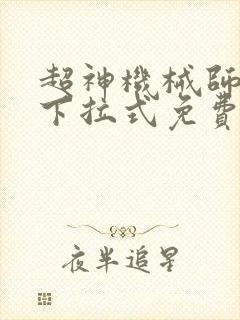 超神機械師
下拉式免費
夜半追星